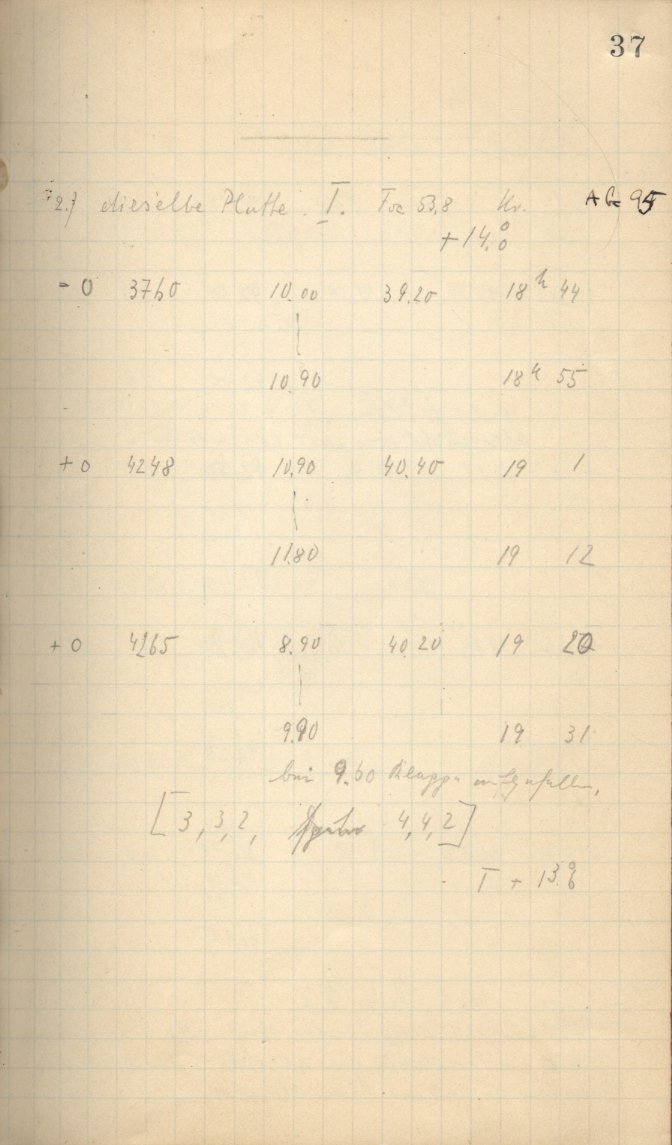 37
2.) dieselbe Platte I. Foc 53,8 Kr. AG 95
+14.°0
- 0 3760 10.00 39.20 18h 44
10.90 18h 55
+ 0 4248 10.90 40.40 19 1
11.80 19 12
+ 0 4265 8.90 40.20 19 20
9.90 19 31
bei 9.60 Klappe
[3, 3, 2, 4, 4, 2]
T + 13.°6